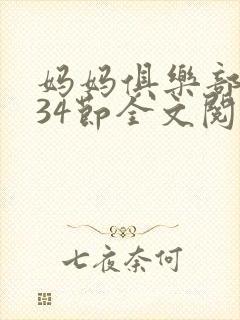 妈妈俱樂部
34節全文閱
七夜奈何